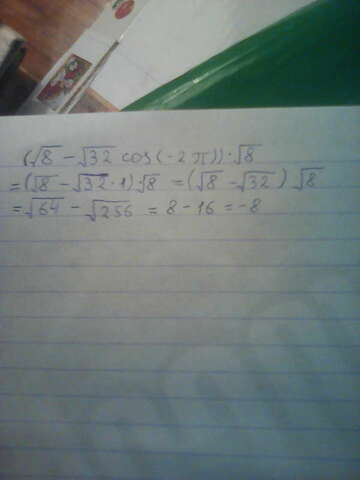 (√8 - √32 cos(-2π))·√8
=(√8 - √32·1)·√8 = (√8 - √32) √8
=√64 - √256 = 8 - 16 = -8